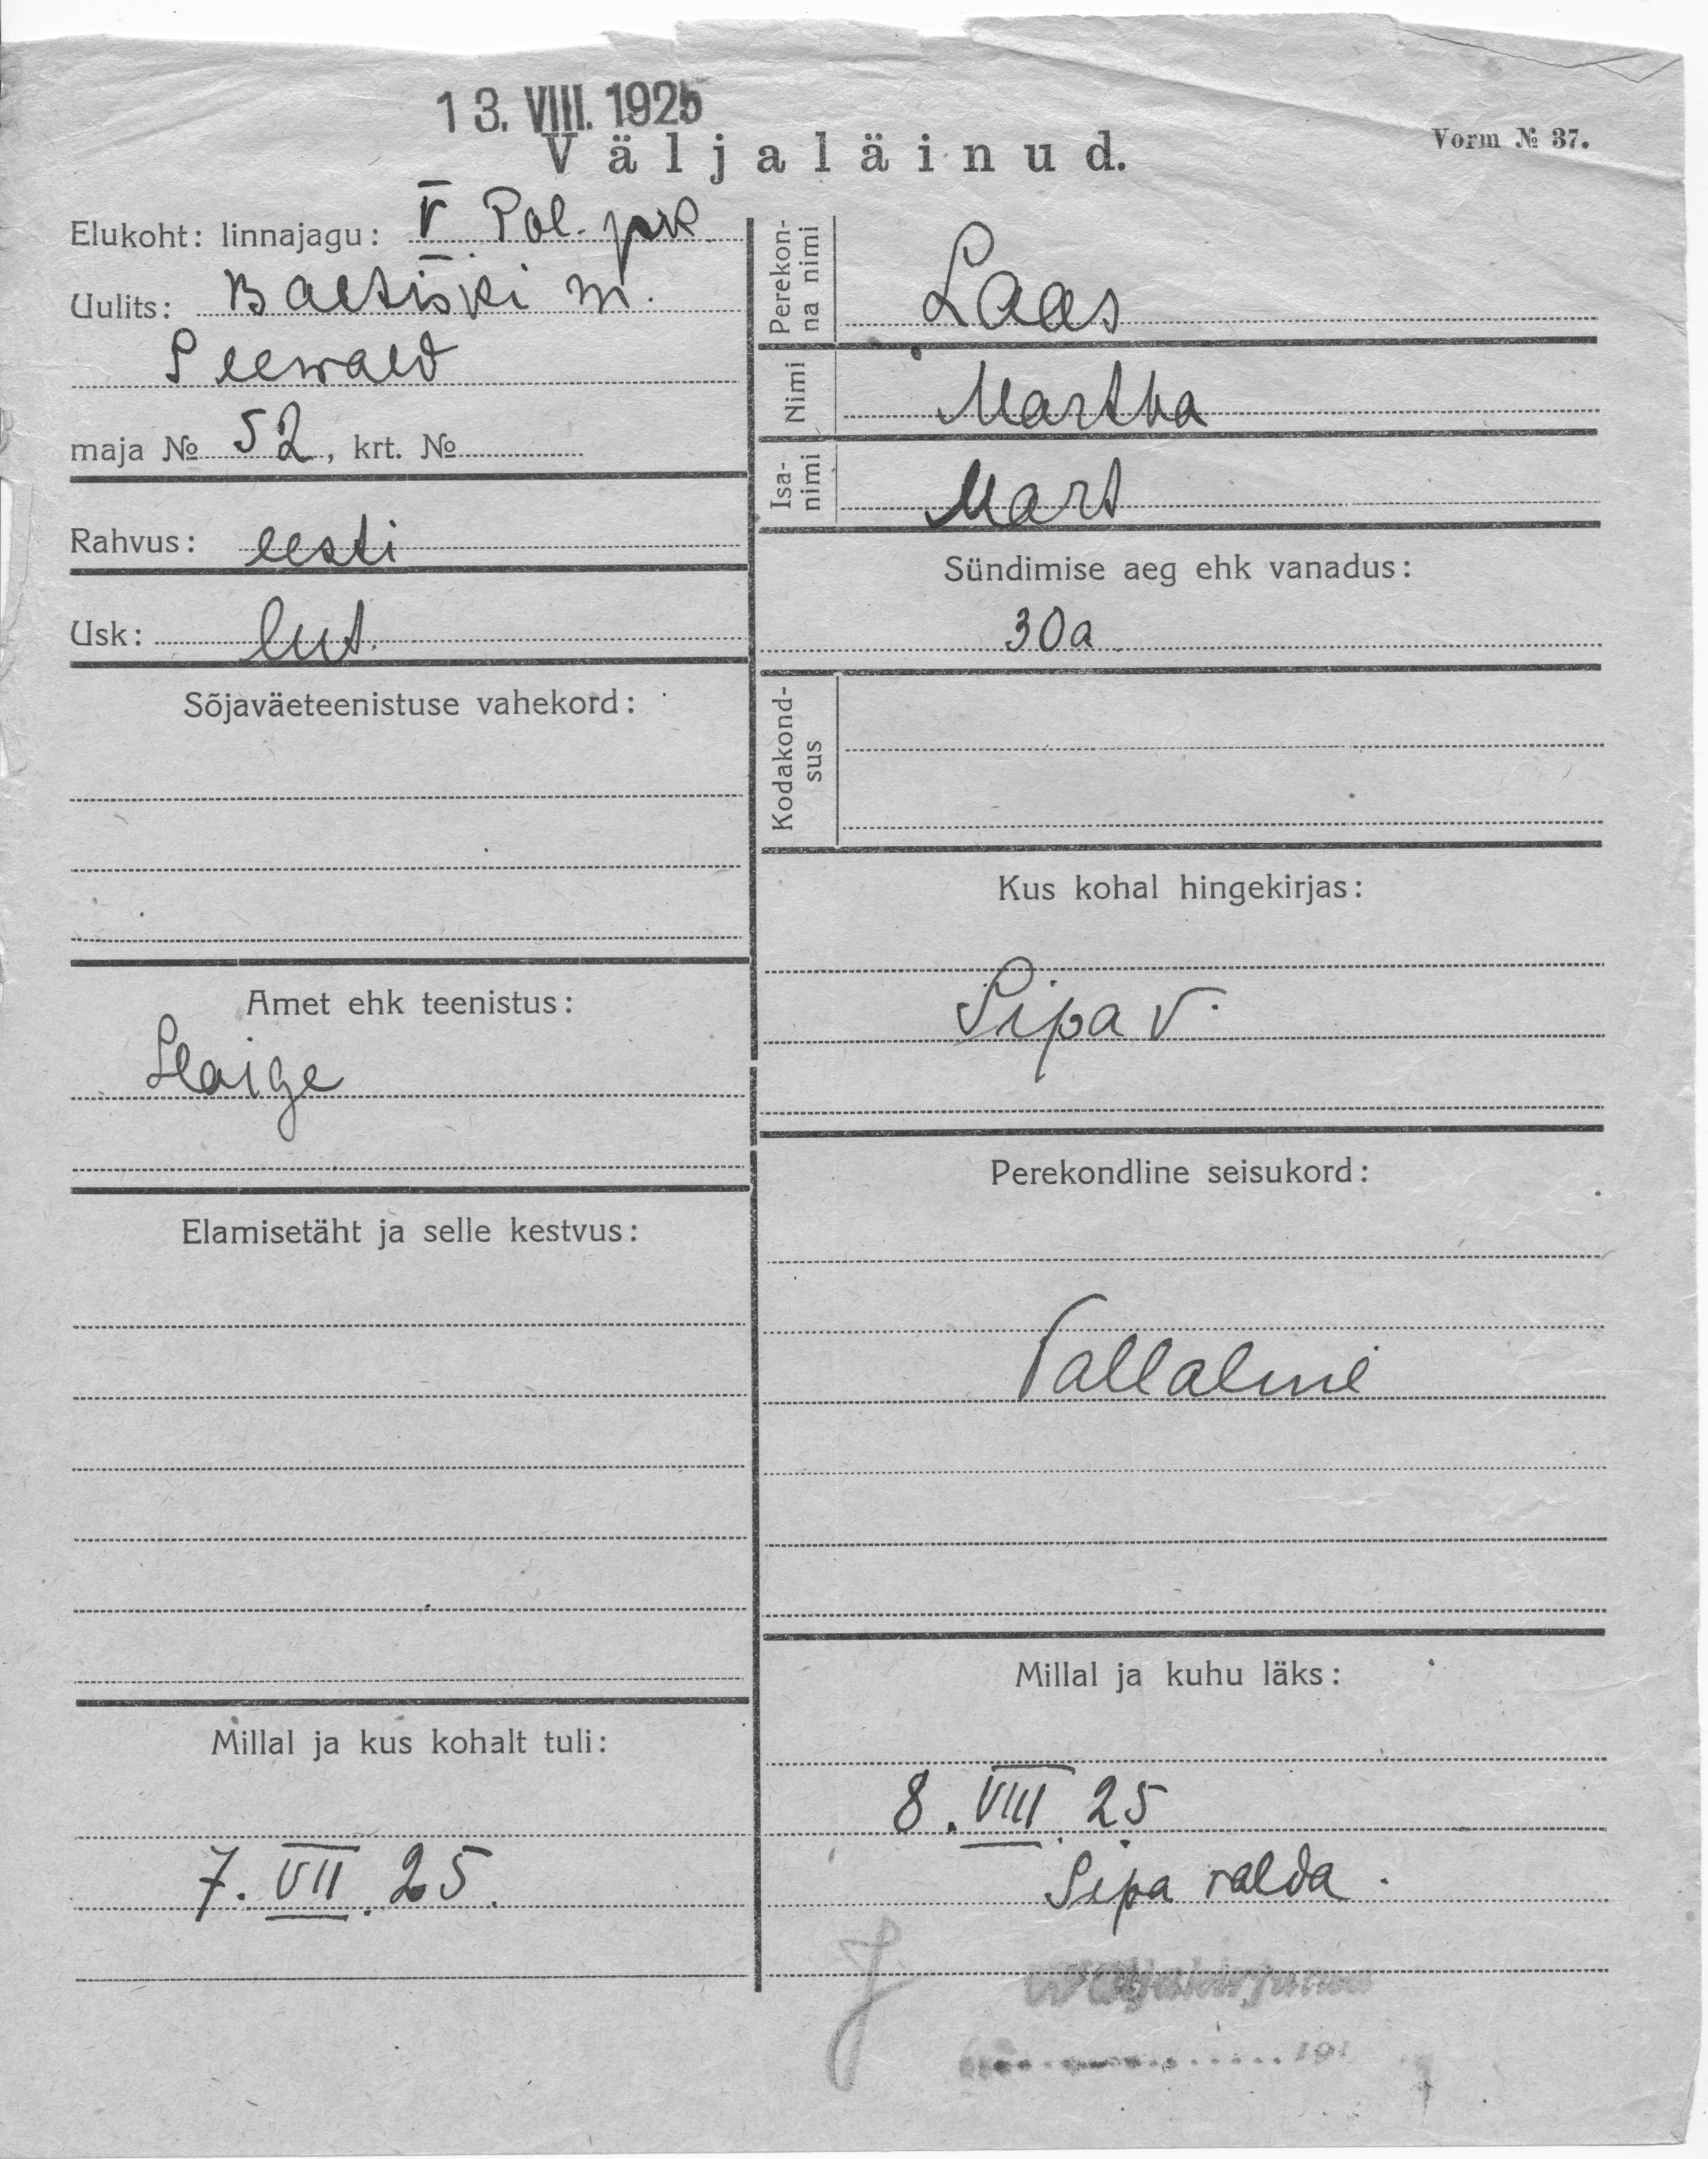 13. VIII. 1925
Väljaläinud.
Vorm № 37.
Elukoht: linnajagu: V Pol. jsk
Uulits: Baltiski m.
Seewald
maja № 52, krt. №
Rahvus: eesti
Usk: lut.
Sõjaväeteenistuse vahekord:
Amet ehk teenistus:
Haige
Elamisetäht ja selle kestvus:
Millal ja kus kohalt tuli:
7. VII. 25.
Perekonna nimi Laas
Nimi Martha
Isanimi Mart
Sündimise aeg ehk vanadus:
30a
Kodakondsus
Kus kohal hingekirjas:
Sipa v.
Perekondline seisukord:
Vallaline
Millal ja kuhu läks:
8. VIII. 25
Sipa valda.
191